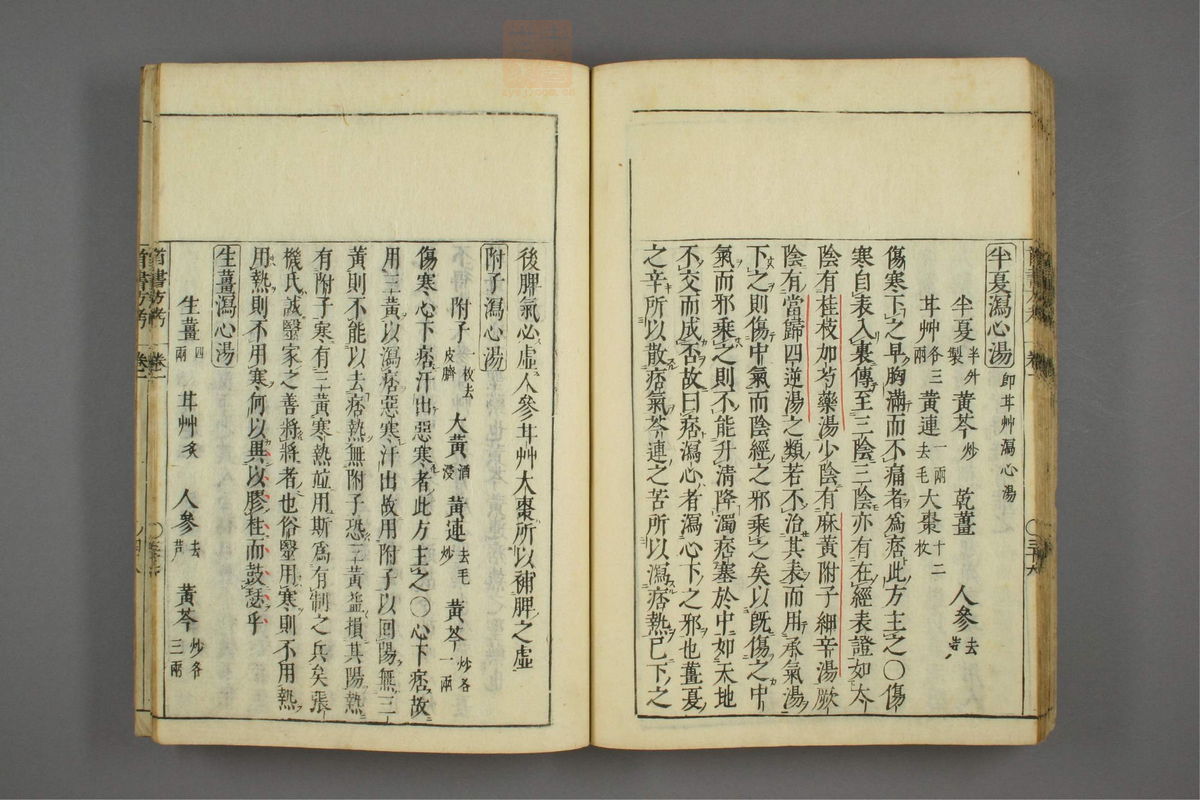 半夏瀉心湯 即甘艸瀉心湯
半夏 半升製 黃芩 炒 乾薑 人參 去芦
甘艸 各三兩 黃連 一兩去毛 大棗 十二枚
傷寒下之早胸滿而不痛者為痞此方主之〇傷
寒自表入裏傳至三陰三陰亦有在經表證如太
陰有桂枝加芍藥湯少陰有麻黃附子細辛湯厥
陰有當歸四逆湯之類若不治其表而用承氣湯
下之則傷中氣而陰經之邪乘之矣以既傷之中
氣而邪乘之則不能升清降濁痞塞於中如天地
不交而成否故曰痞瀉心者瀉心下之邪也薑夏
之辛所以散痞氣芩連之苦所以瀉痞熱已下之
後脾氣必虛人參甘艸大棗所以補脾之虛
附子瀉心湯
附子 一枚去皮臍 大黃 酒浸 黃連 去毛炒 黃芩 炒各一兩
傷寒心下痞汗出惡寒者此方主之〇心下痞故
用三黃以瀉痞惡寒汗出故用附子以回陽無三
黃則不能以去痞熱無附子恐三黃益損其陽熱
有附子寒有三黃寒熱竝用斯為有制之兵矣張
機氏誠醫家之善將將者也俗醫用寒則不用熱
用熱則不用寒何以異以膠柱而鼓瑟乎
生薑瀉心湯
生薑 四兩 甘艸 炙 人參 去芦 黃芩 炒各三兩